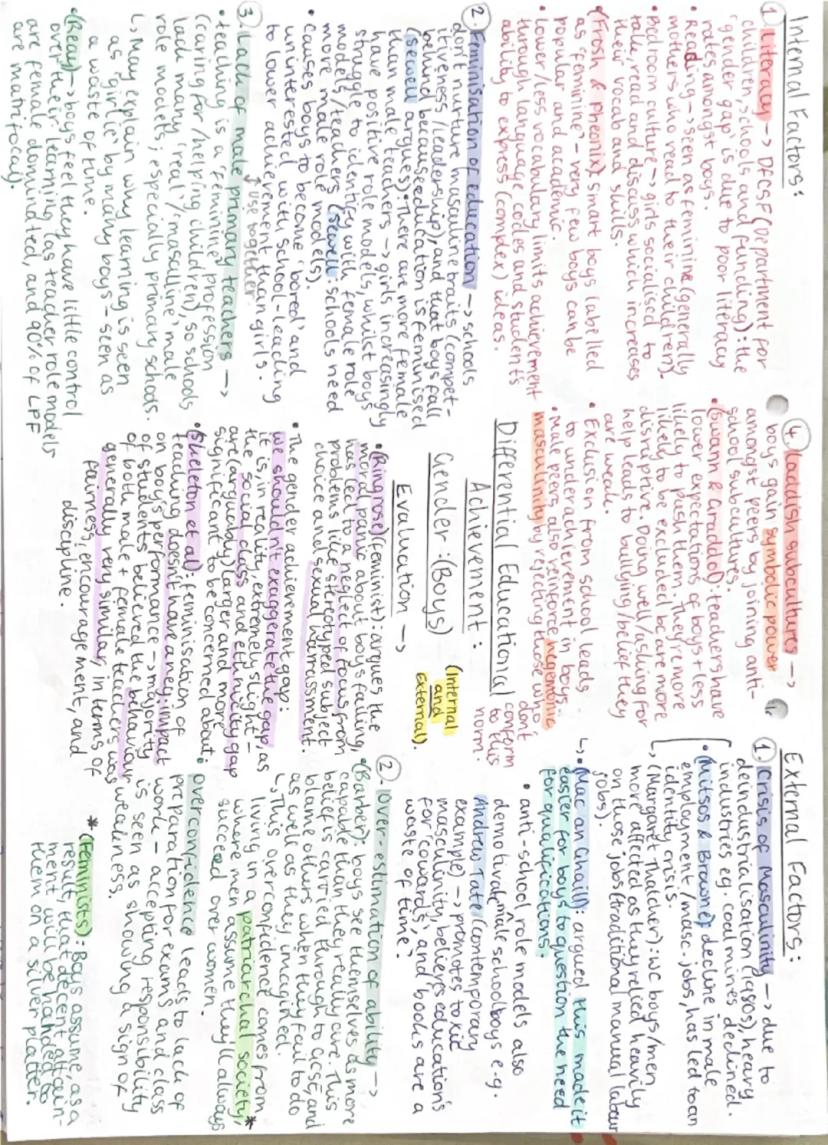 Internal Factors:
① Literacy → DFCSF (Department for
children, schools and funding): the
'gender gap' is due to poor literacy
rates amongst boys.
• Reading → seen as feminine (generally
mothers who read to their children).
• Bedroom culture → girls socialised to
talk, read and discuss which increases
their vocab and skills.
• (Frosh & Pheonix) smart boys labelled
as 'feminine' - very few boys can be
popular and academic.
• lower/less vocabulary limits achievement
through language codes and student's
ability to express (complex) ideas.
② Feminisation of education → schools
don't nurture masculine traits (compet-
itiveness/leadership), and that boys fall
behind because education is feminised
(Sewell argues). There are more female
than male teachers → girls increasingly
have positive role models, whilst boys
struggle to identify with female role
models/teachers (Sewell: schools need
more male role models).
• causes boys to become 'bored' and
uninterested with school - leading
to lower achievement than girls.
↑ use together
③ Lack of male primary teachers →
• teaching is a 'feminine' profession
(caring for/helping children), so schools
lack many 'real'/'masculine' male
role models; especially primary schools.
↳ May explain why learning is seen
as 'girlie' by many boys - seen as
a waste of time.
• (Reay) → boys feel they have little control
over their learning (as teacher role models
are female dominated, and 90% of LPF
are matrifocal).
④ Laddish subcultures →
boys gain symbolic power
amongst peers by joining anti-
school subcultures.
• (Swann & Graddol): teachers have
lower expectations of boys + less
likely to push them. They're more
likely to be excluded before more
disruptive. Doing well/asking for
help leads to bullying/belief they
are weak.
• Exclusion from school leads
to underachievement in boys.
• Male peers also reinforce hegemonic
masculinity by rejecting those who
don't
conform
to this
norm.
Differential Educational
Achievement:
Gender: (Boys)
(Internal
and
External).
Evaluation →
• (Ringrose) (feminist): argues the
moral panic about boys failing,
has led to a neglect of focus from
problems like stereotyped subject
choice and sexual harrassment.
• The gender achievement gap:
we shouldn't exaggerate the gap, as
it is, in reality, extremely slight -
the social class and ethnicity gap
are (arguably) larger and more
significant to be concerned about.
• (Skelton et al): feminisation of
teaching doesn't have a neg. impact
on boy's performance → majority
of students believed the behaviour
of both male + female teachers was
generally very similar, in terms of
fairness, encouragement, and
discipline.
External Factors:
① Crisis of Masculinity → due to
deindustrialisation (1980s), heavy
industries eg. coal mines declined.
• (Mitsos & Browne): decline in male
employment/masc. jobs, has led to an
identity crisis.
↳ (Margaret Thatcher): WC boys/men
more affected as they relied heavily
on those jobs (traditional manual labour
jobs).
↳ (Mac an Ghaill): argued this made it
easier for boys to question the need
for qualifications.
• anti-school role models also
demotivate male schoolboys e.g.
Andrew Tate (contemporary
example) → promotes toxic
masculinity, believes education's
for 'cowards', and books are a
'waste of time'.
② Over-estimation of ability →
• (Barber): boys see themselves as more
capable than they really are. This
belief is carried through to GCSE and
blame others when they fail to do
as well as they imagined.
↳ This overconfidence comes from
living in a patriarchal society,*
where men assume they'll always
succeed over women.
• overconfidence leads to lack of
preparation for exams and class
work - accepting responsibility
is seen as showing a sign of
weakness.
* (Feminists): Boys assume, as a
result, that decent attain-
ment will be handed to
them on a silver platter.